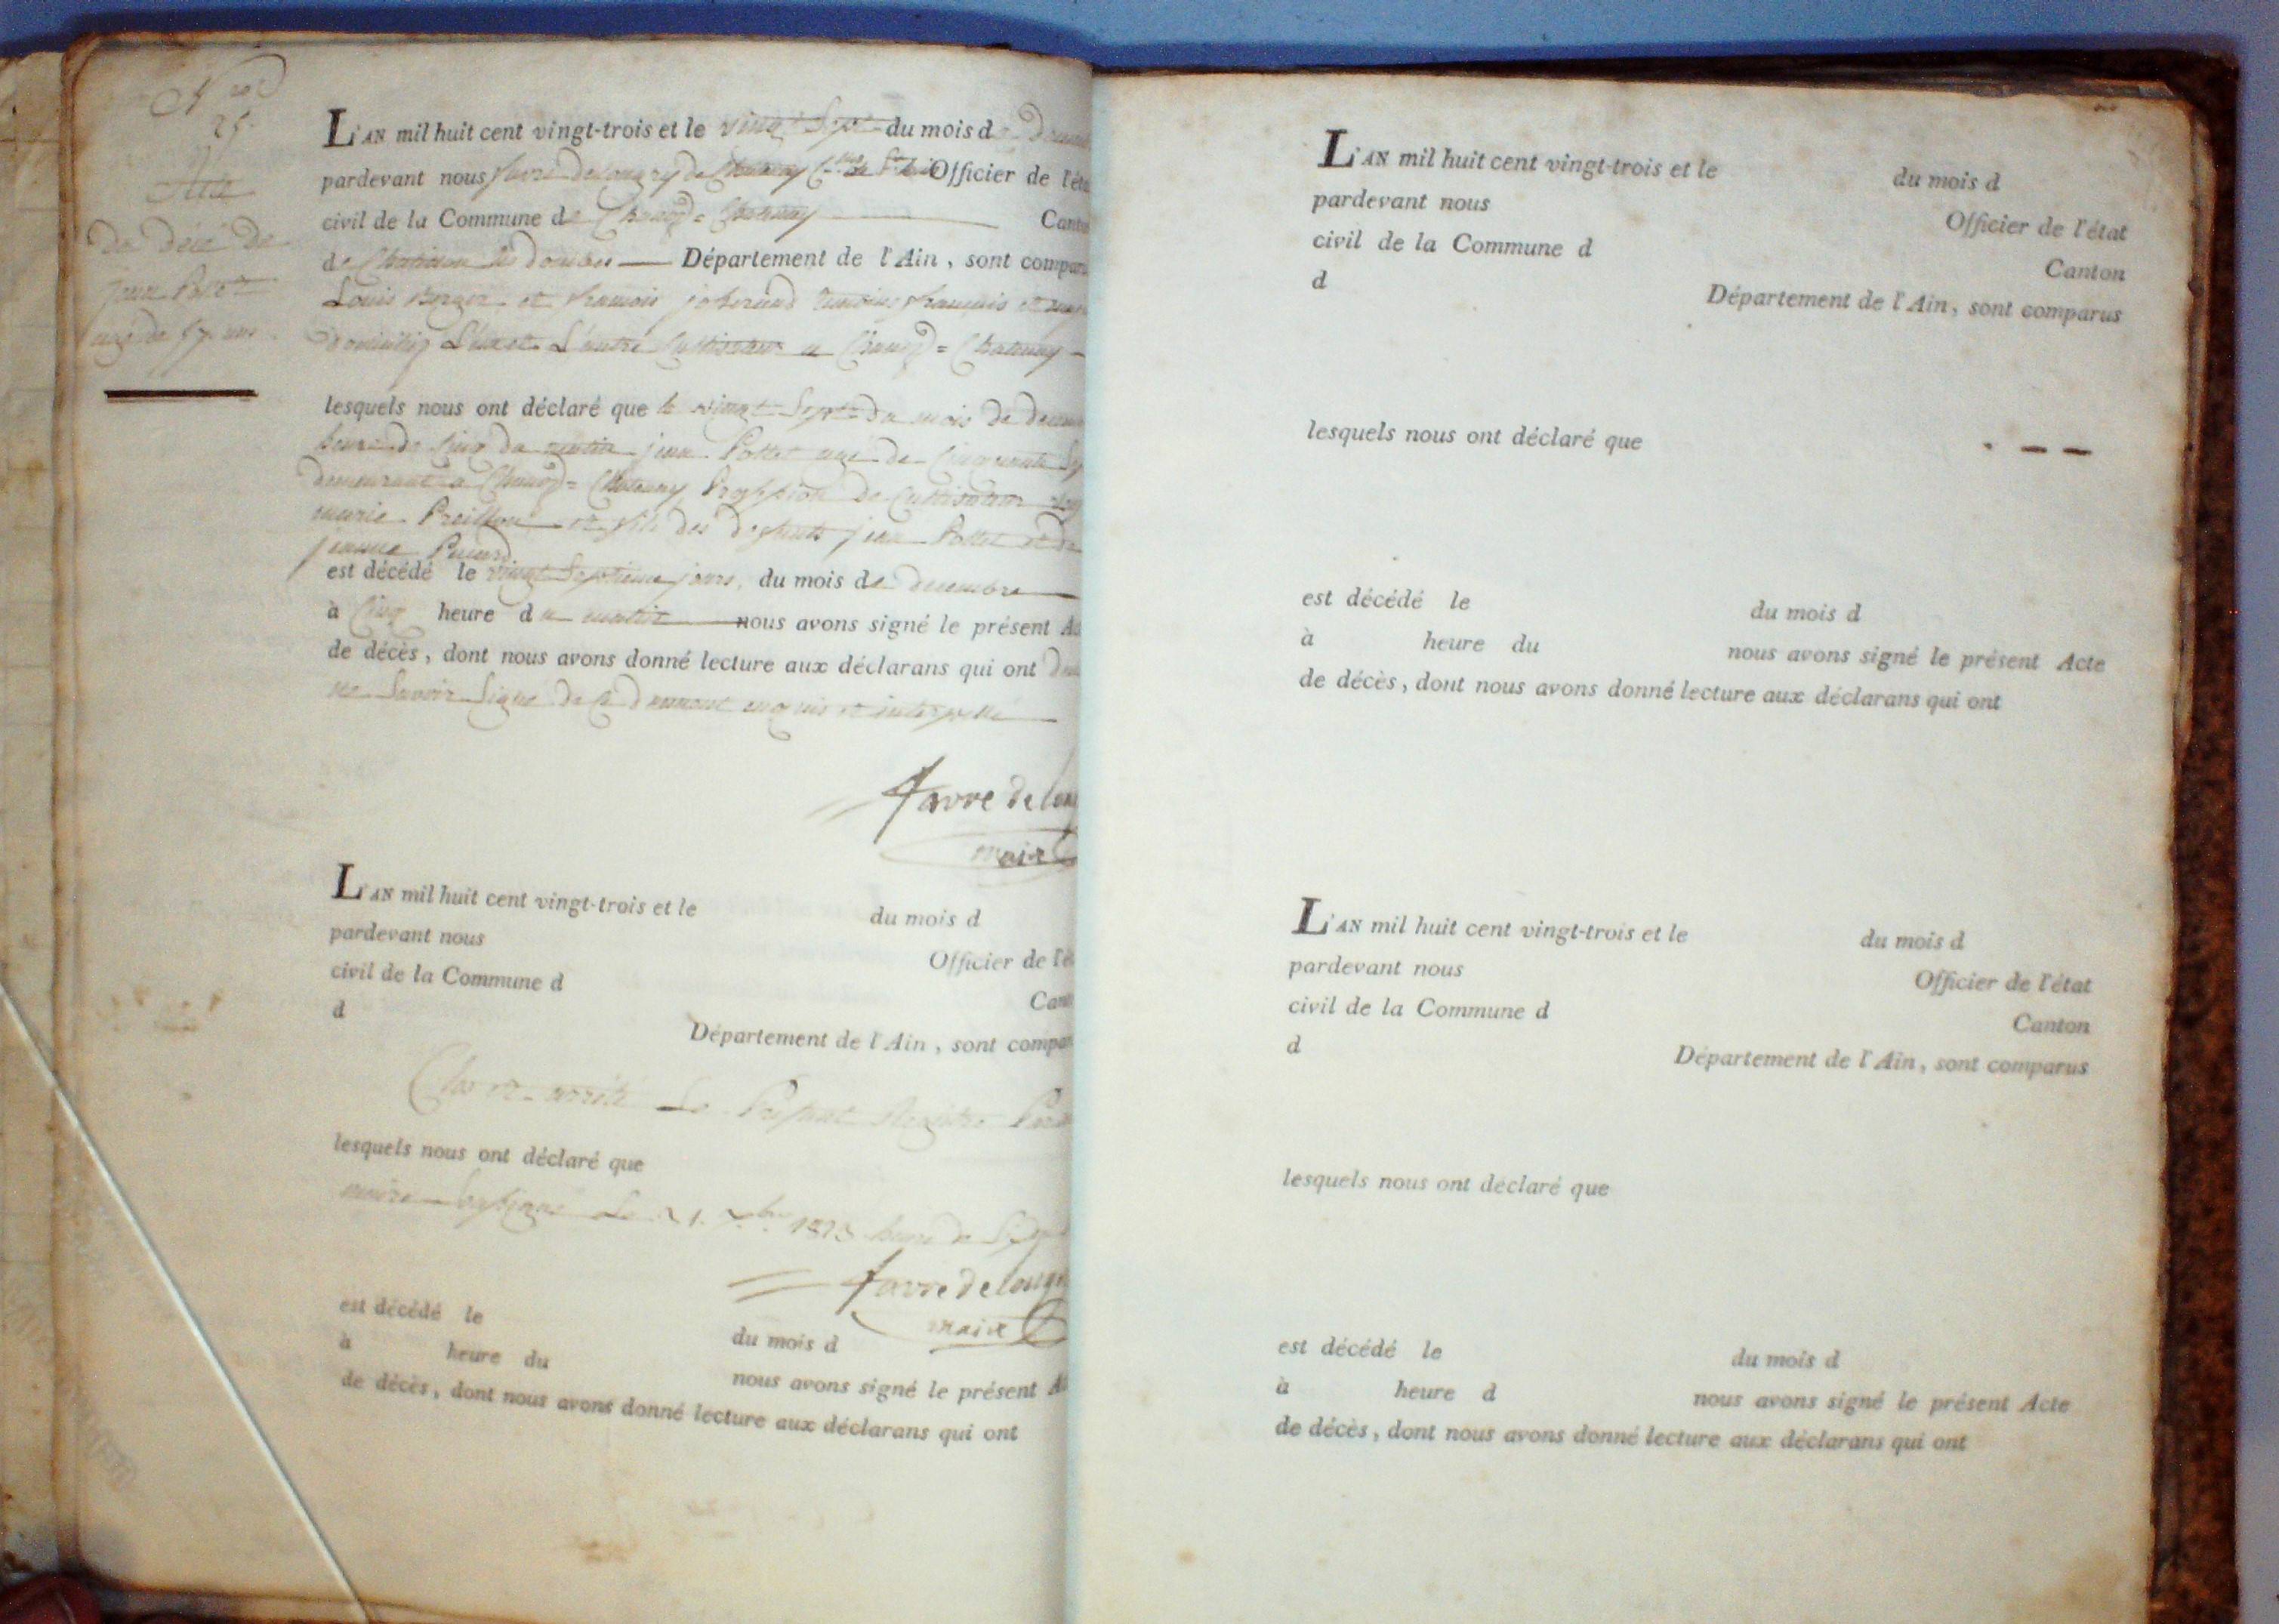 25.
Acte
de décé de
jean Pol
agé de 57 ans
L'AN mil huit cent vingt-trois et le vingt Sept du mois d
pardevant nous favre de Officier de l'éta
civil de la Commune de Chatenay Canto
de Département de l'Ain, sont compar
Louis Berger et françois témoins français et
L'un et L'autre Cultivateur a Chatenay
lesquels nous ont déclaré que le vingt Sept du mois de decem
heure de Cinq du matin jean Pollet agé de Cinquante
demeurant a Chatenay Profession de Cultivateur
marie et fils des defunts jean Pollet et de
jeanne
est décédé le vingt Septieme jour du mois de decembre
à Cinq heure du matin nous avons signé le présent Ac
de décès, dont nous avons donné lecture aux déclarans qui ont
ne Savoir Signé de Ce enquis et interpellé
favre de lon
maire
L'AN mil huit cent vingt-trois et le du mois d
pardevant nous Officier de l'é
civil de la Commune d Cant
d Département de l'Ain, sont compar
Clos et arrété Le Présent Régistre Par
lesquels nous ont déclaré que
maire Soussigné Le
favre de long
est décédé le maire
du mois d
à heure du nous avons signé le présent A
de décès, dont nous avons donné lecture aux déclarans qui ont
L'AN mil huit cent vingt-trois et le du mois d
pardevant nous Officier de l'état
civil de la Commune d Canton
d Département de l'Ain, sont comparus
lesquels nous ont déclaré que
est décédé le du mois d
à heure du nous avons signé le présent Acte
de décès, dont nous avons donné lecture aux déclarans qui ont
L'AN mil huit cent vingt-trois et le du mois d
pardevant nous Officier de l'état
civil de la Commune d Canton
d Département de l'Ain, sont comparus
lesquels nous ont déclaré que
est décédé le du mois d
à heure d nous avons signé le présent Acte
de décès, dont nous avons donné lecture aux déclarans qui ont